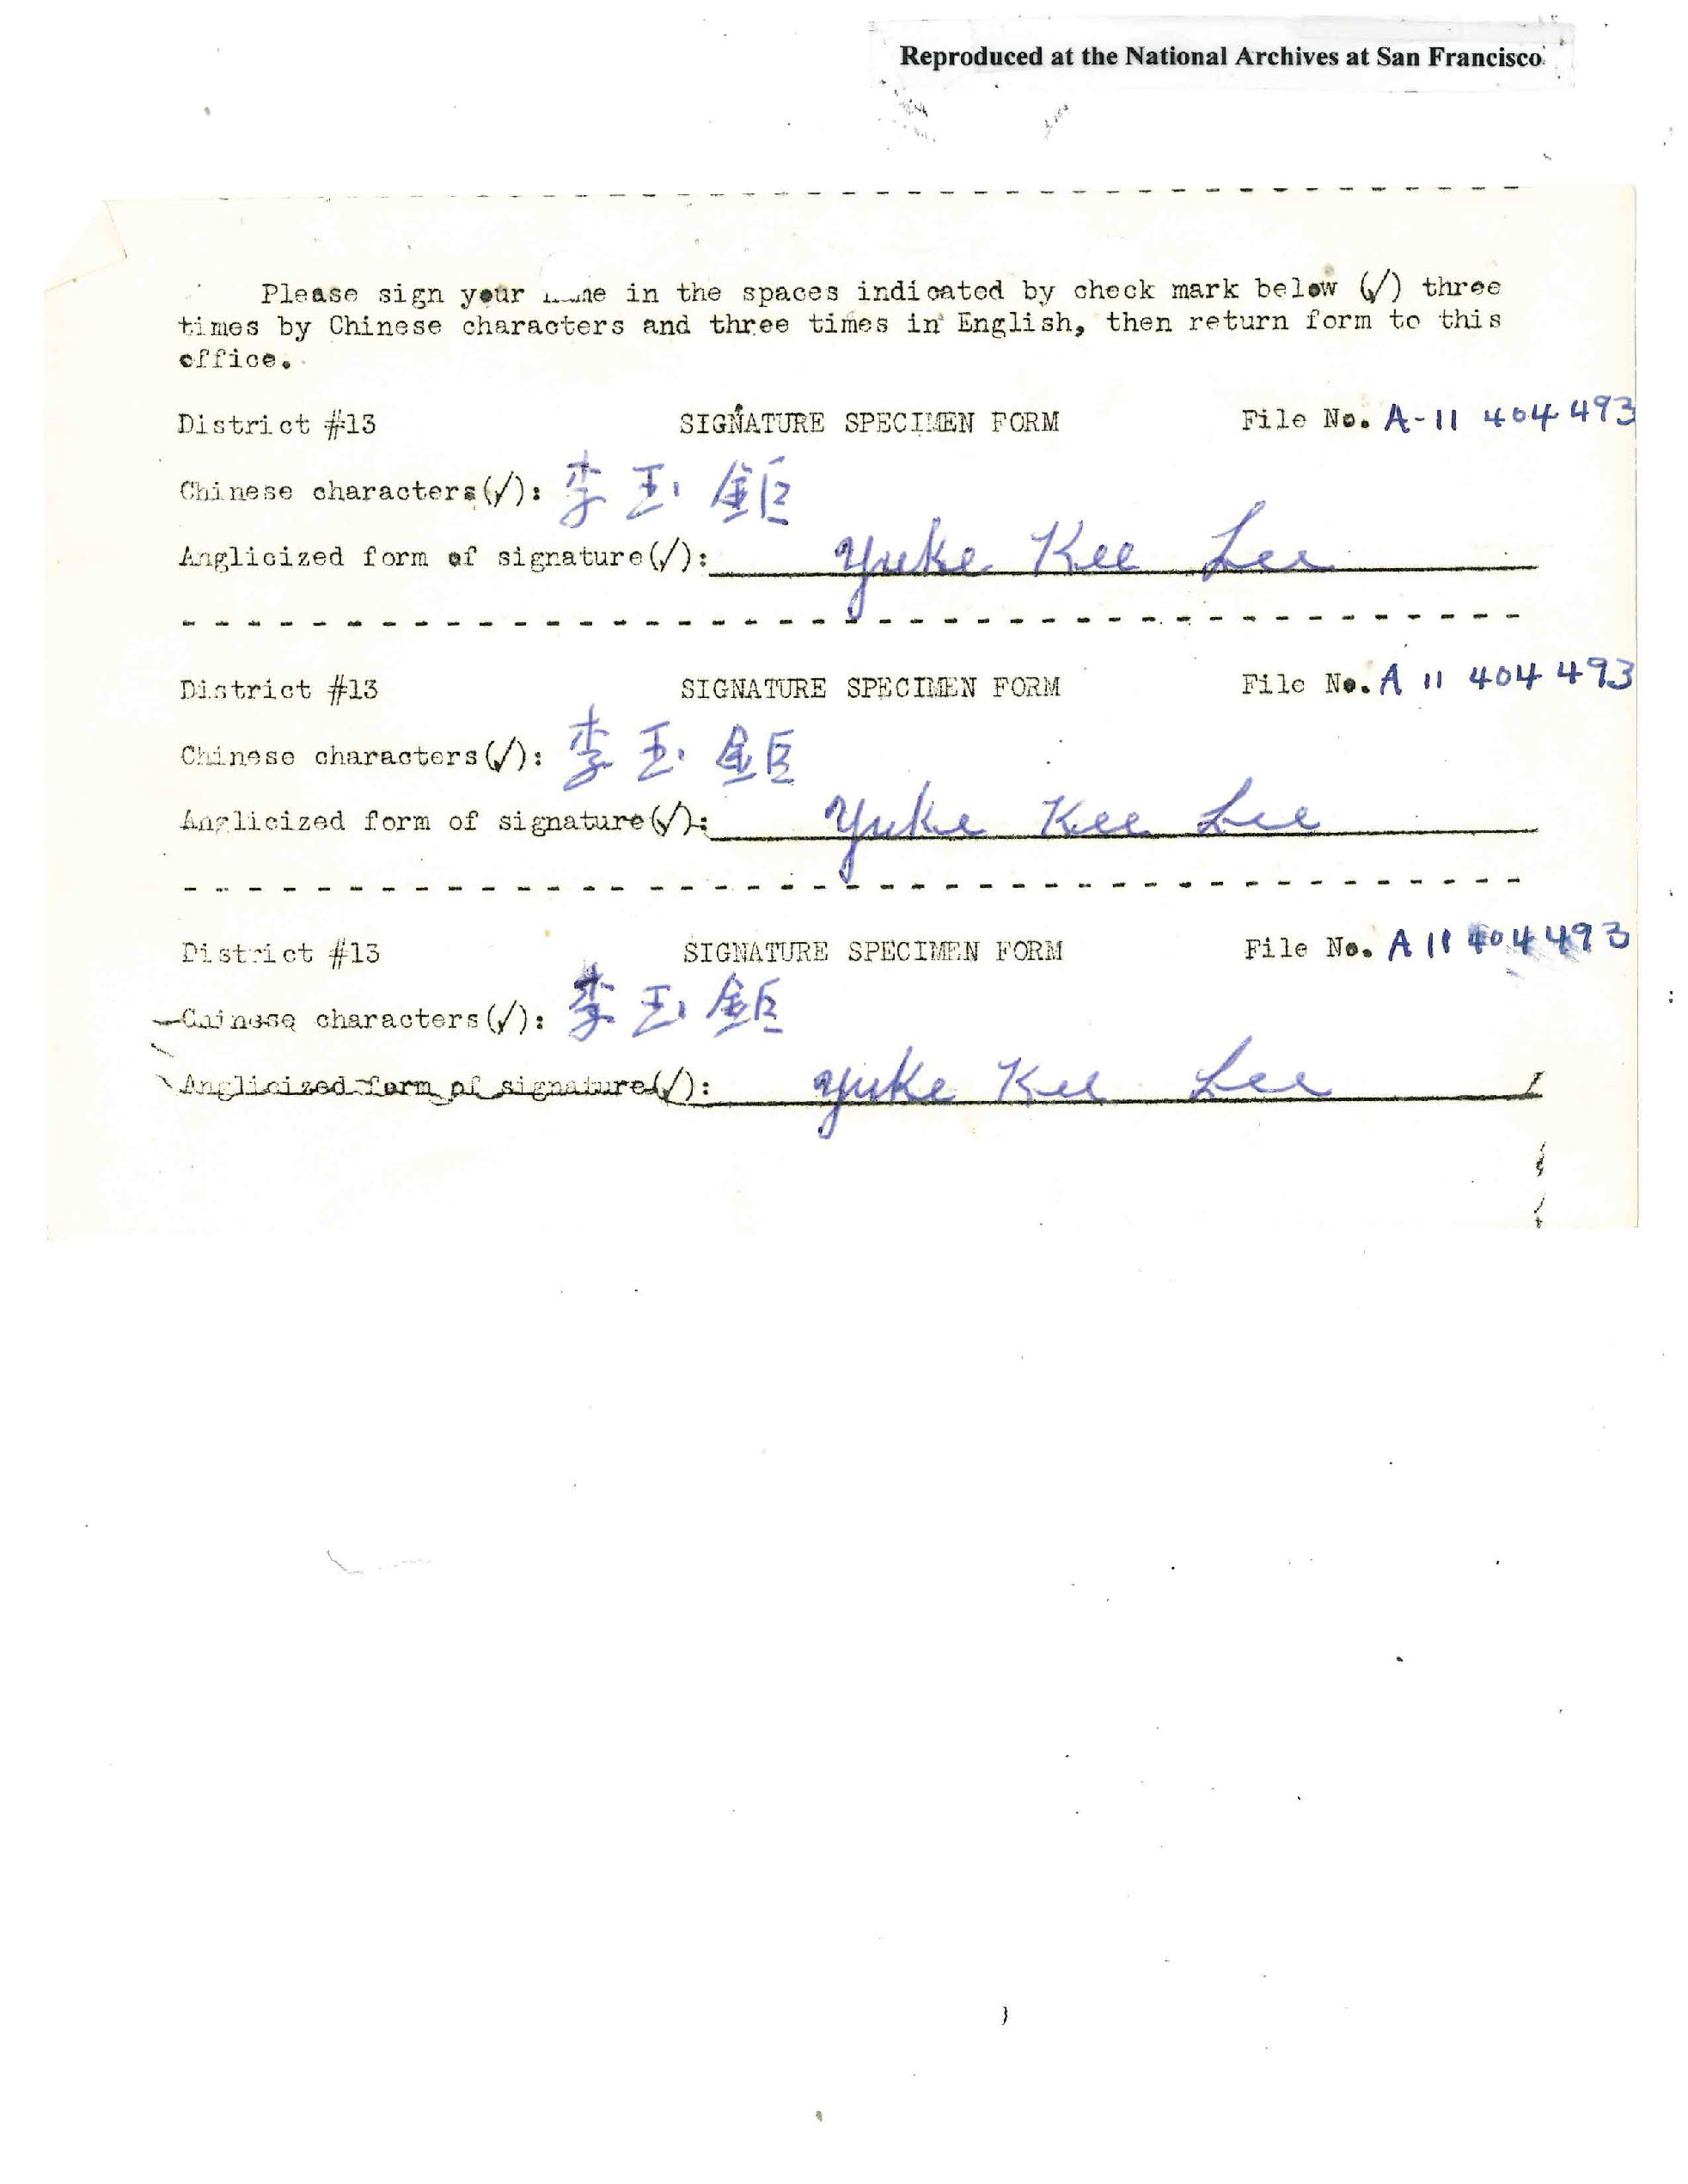 Reproduced at the National Archives at San Francisco
Please sign your name in the spaces indicated by check mark below (✓) three
times by Chinese characters and three times in English, then return form to this
office.
District #13 SIGNATURE SPECIMEN FORM File No. A-11 404 493
Chinese characters(✓): 李玉鉅
Anglicized form of signature(✓): Yuke Kee Lee
District #13 SIGNATURE SPECIMEN FORM File No. A 11 404 493
Chinese characters(✓): 李玉鉅
Anglicized form of signature(✓): Yuke Kee Lee
District #13 SIGNATURE SPECIMEN FORM File No. A 11 404 493
Chinese characters(✓): 李玉鉅
Anglicized form of signature(✓): Yuke Kee Lee